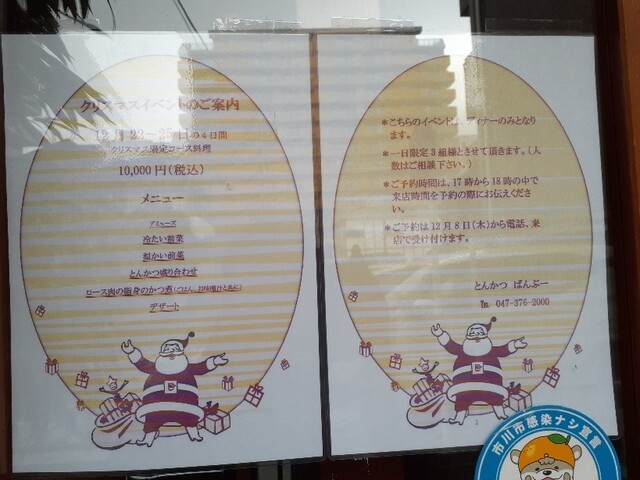 クリスマスイベントのご案内
12月 22~25日の4日間
クリスマス限定コース料理
10,000円(税込)
メニュー
アミューズ
冷たい前菜
温かい前菜
とんかつ盛り合わせ
ロース肉の脂身のかつ煮
デザート
*こちらのイベントは、ディナーのみとなり
ます。
*一日限定3組様とさせて頂きます。(人
数はご相談下さい。)
*ご予約時間は、17時から18時の中で
来店時間を予約の際にお伝えくださ
い。
*ご予約は12月8日(木)から電話、来
店で受け付けます。
とんかつ ぱんぷー
℡ 047-376-2000
市川市感染ナシ宣言